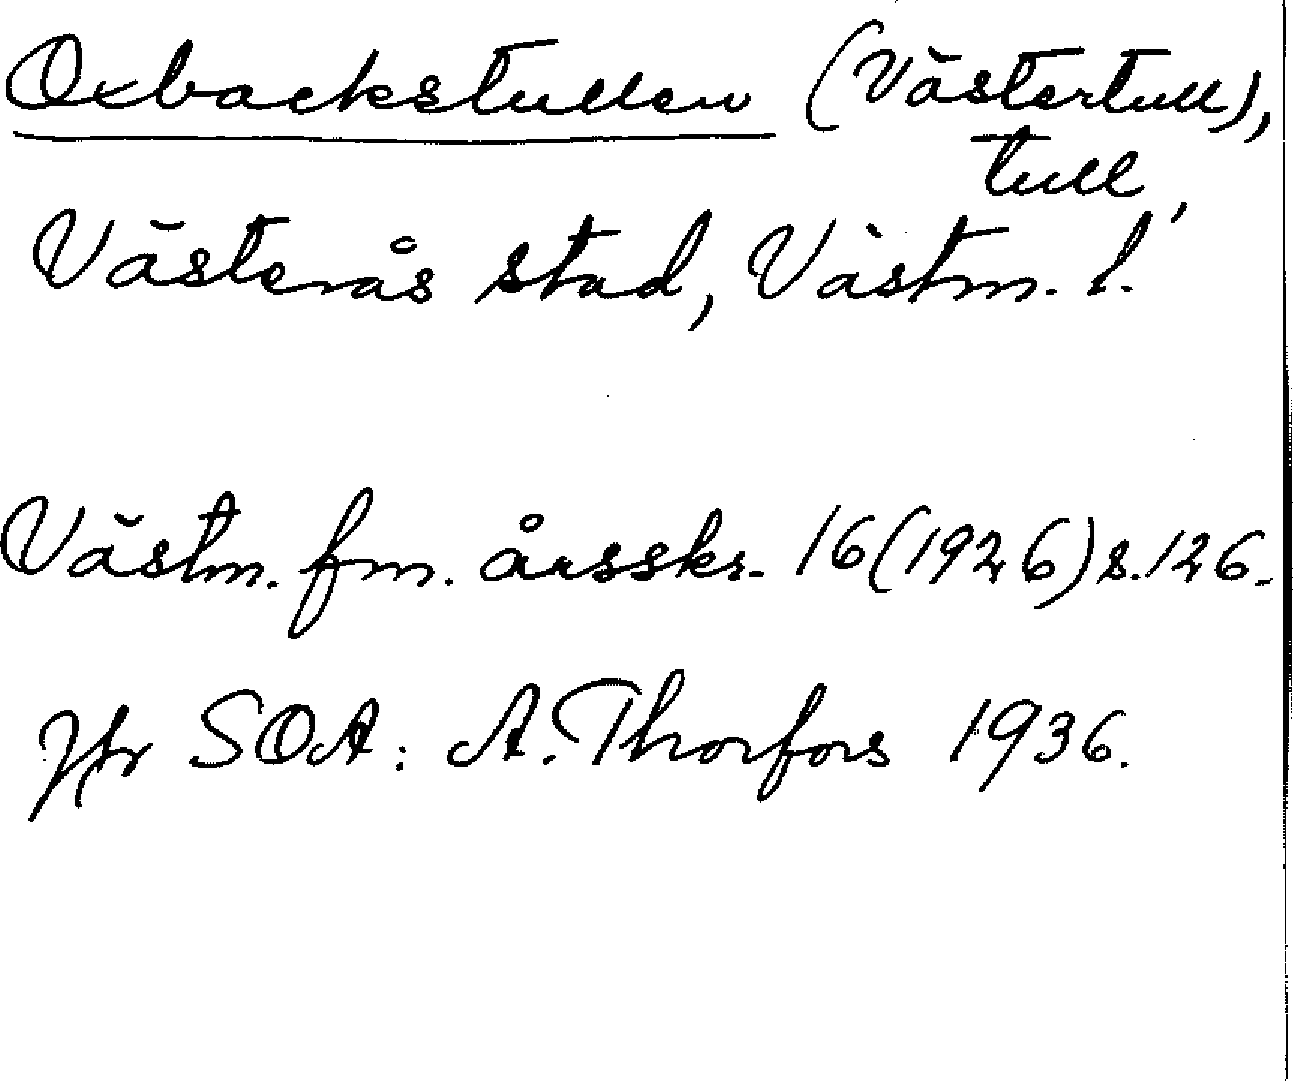 Oxbackstullen (Västertull),
tull,
Västerås stad, Västm. l.
Västm. fm. årsskr. 16(1926) s. 126.
Jfr SOA: A. Thorfors 1936.